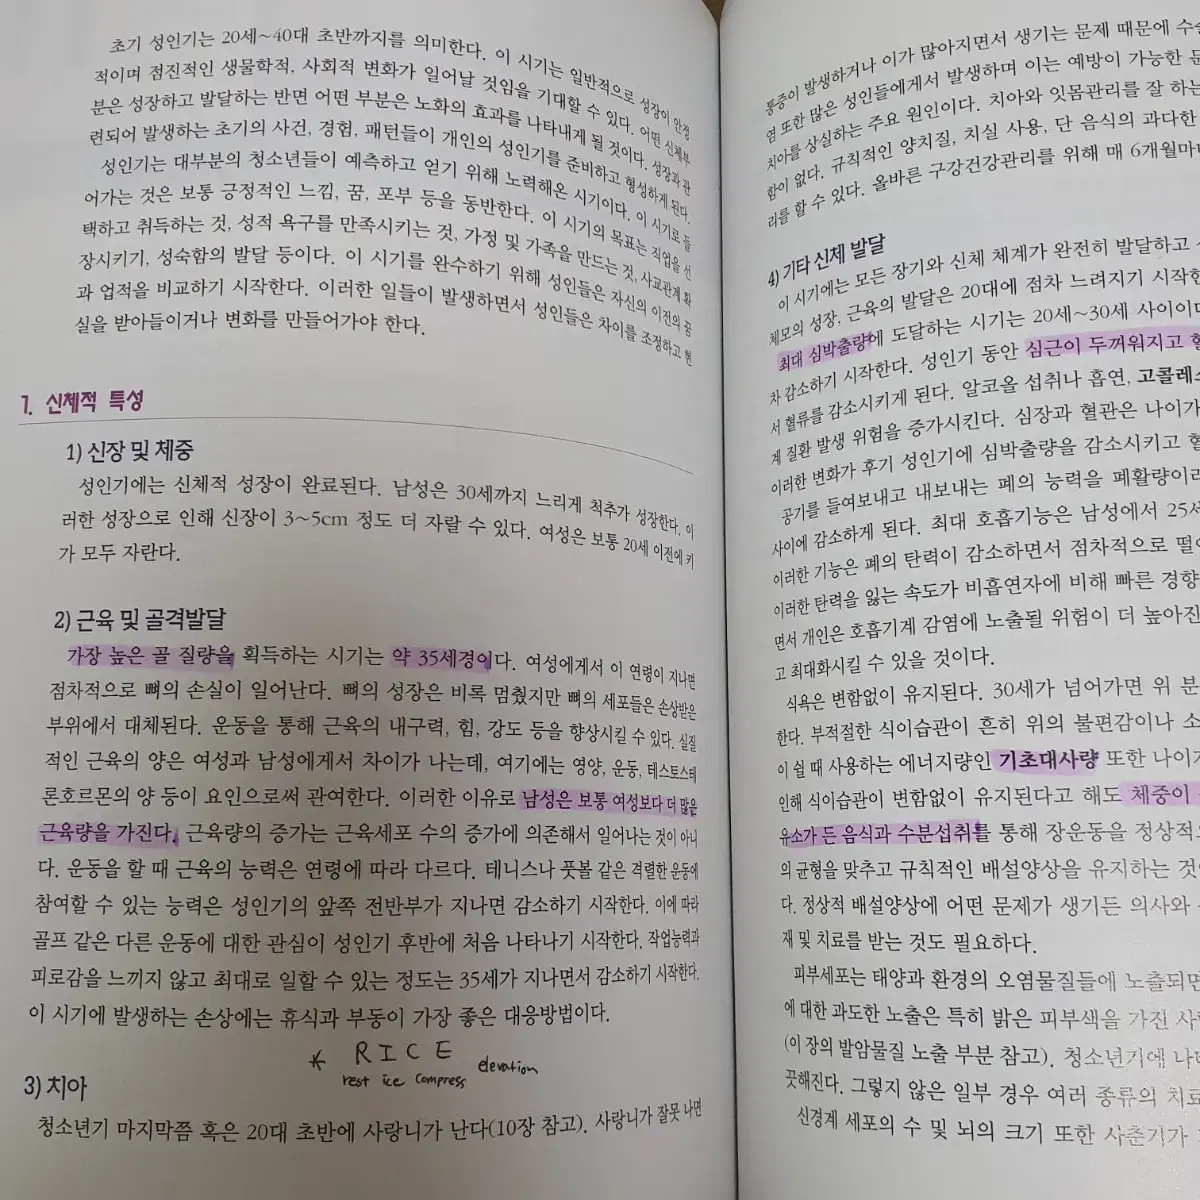 초기 성인기는 20세~40대 초반까지를 의미한다. 이 시기는 일반적으로 성장이 안정
적이며 점진적인 생물학적, 사회적 변화가 일어날 것임을 기대할 수 있다. 어떤 신체부
분은 성장하고 발달하는 반면 어떤 부분은 노화의 효과를 나타내게 될 것이다. 성장과 관
련되어 발생하는 초기의 사건, 경험, 패턴들이 개인의 성인기를 준비하고 형성하게 된다.
성인기는 대부분의 청소년들이 예측하고 얻기 위해 노력해온 시기이다. 이 시기로 들
어가는 것은 보통 긍정적인 느낌, 꿈, 포부 등을 동반한다. 이 시기의 목표는 직업을 선
택하고 취득하는 것, 성적 욕구를 만족시키는 것, 가정 및 가족을 만드는 것, 사교관계 확
장시키기, 성숙함의 발달 등이다. 이 시기를 완수하기 위해 성인들은 자신의 이전의 꿈
과 업적을 비교하기 시작한다. 이러한 일들이 발생하면서 성인들은 차이를 조정하고 현
실을 받아들이거나 변화를 만들어가야 한다.
1. 신체적 특성
1) 신장 및 체중
성인기에는 신체적 성장이 완료된다. 남성은 30세까지 느리게 척추가 성장한다. 이
러한 성장으로 인해 신장이 3~5cm 정도 더 자랄 수 있다. 여성은 보통 20세 이전에 키
가 모두 자란다.
2) 근육 및 골격발달
가장 높은 골 질량을 획득하는 시기는 약 35세경이다. 여성에게서 이 연령이 지나면
점차적으로 뼈의 손실이 일어난다. 뼈의 성장은 비록 멈췄지만 뼈의 세포들은 손상받은
부위에서 대체된다. 운동을 통해 근육의 내구력, 힘, 강도 등을 향상시킬 수 있다. 실질
적인 근육의 양은 여성과 남성에게서 차이가 나는데, 여기에는 영양, 운동, 테스토스테
론호르몬의 양 등이 요인으로써 관여한다. 이러한 이유로 남성은 보통 여성보다 더 많은
근육량을 가진다. 근육량의 증가는 근육세포 수의 증가에 의존해서 일어나는 것이 아니
다. 운동을 할 때 근육의 능력은 연령에 따라 다르다. 테니스나 풋볼 같은 격렬한 운동에
참여할 수 있는 능력은 성인기의 앞쪽 전반부가 지나면 감소하기 시작한다. 이에 따라
골프 같은 다른 운동에 대한 관심이 성인기 후반에 처음 나타나기 시작한다. 작업능력과
피로감을 느끼지 않고 최대로 일할 수 있는 정도는 35세가 지나면서 감소하기 시작한다.
이 시기에 발생하는 손상에는 휴식과 부동이 가장 좋은 대응방법이다.
* RICE
rest ice compress elevation
3) 치아
청소년기 마지막쯤 혹은 20대 초반에 사랑니가 난다(10장 참고). 사랑니가 잘못 나면
통증이 발생하거나 이가 많아지면서 생기는 문제 때문에 수술
염 또한 많은 성인들에게서 발생하며 이는 예방이 가능한 문
치아를 상실하는 주요 원인이다. 치아와 잇몸관리를 잘 하는
함이 없다. 규칙적인 양치질, 치실 사용, 단 음식의 과다한
리를 할 수 있다. 올바른 구강건강관리를 위해 매 6개월마다
4) 기타 신체 발달
이 시기에는 모든 장기와 신체 체계가 완전히 발달하고
체모의 성장, 근육의 발달은 20대에 점차 느려지기 시작한
최대 심박출량에 도달하는 시기는 20세~30세 사이이다
차 감소하기 시작한다. 성인기 동안 심근이 두꺼워지고 혈
서 혈류를 감소시키게 된다. 알코올 섭취나 흡연, 고콜레스
계 질환 발생 위험을 증가시킨다. 심장과 혈관은 나이가
이러한 변화가 후기 성인기에 심박출량을 감소시키고 혈
공기를 들여보내고 내보내는 폐의 능력을 폐활량이라
사이에 감소하게 된다. 최대 호흡기능은 남성에서 25세
이러한 기능은 폐의 탄력이 감소하면서 점차적으로 떨어
이러한 탄력을 잃는 속도가 비흡연자에 비해 빠른 경향
면서 개인은 호흡기계 감염에 노출될 위험이 더 높아진
고 최대화시킬 수 있을 것이다.
식욕은 변함없이 유지된다. 30세가 넘어가면 위 분
한다. 부적절한 식이습관이 흔히 위의 불편감이나 소
이 쉴 때 사용하는 에너지량인 기초대사량 또한 나이가
인해 식이습관이 변함없이 유지된다고 해도 체중이
유소가 든 음식과 수분섭취를 통해 장운동을 정상적
의 균형을 맞추고 규칙적인 배설양상을 유지하는 것
다. 정상적 배설양상에 어떤 문제가 생기든 의사와
재 및 치료를 받는 것도 필요하다.
피부세포는 태양과 환경의 오염물질들에 노출되면
에 대한 과도한 노출은 특히 밝은 피부색을 가진 사람
(이 장의 발암물질 노출 부분 참고). 청소년기에 나타
끗해진다. 그렇지 않은 일부 경우 여러 종류의 치료
신경계 세포의 수 및 뇌의 크기 또한 사춘기가